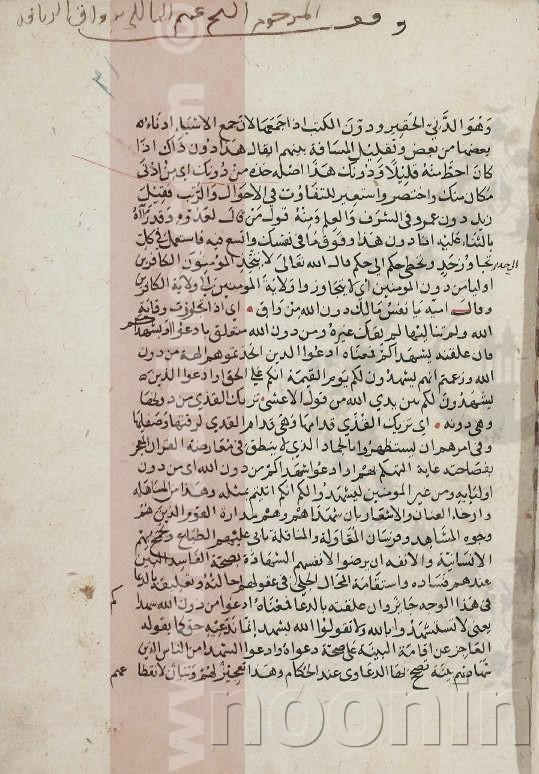 وهو الدني الحقير ودون الكتب اذا جمعها لان جمع الاشياء ادناء
بعضها من بعض وتقليل المسافة بينهم يقال هذا دون ذاك اذا
كان احط منه قليلا ودونك هذا اصله خذه من دونك اي من ادنى
مكان منك واختصر واستعير للتفاوت في الاحوال والرتب فقيل
زيد دون عمرو في الشرف والعلم ومنه قول من قال لعدوه وقد رآه
بالثناء عليه انا دون هذا وفوق ما في نفسك واتسع فيه فاستعمل في كل
تجاوز حد وتخطي حكم الى حكم قال الله تعالى لا يتخذ المومنون الكافرين
اوليا من دون المومنين اي لا يتجاوزوا ولاية المومنين الى ولاية الكافرين
وقال امية يا نفس مالك دون الله من واق اي اذا تجاوزت وقاية
الله ولم تناليها لم يقك غيره ومن دون الله متعلق بادعوا او بشهداكم
فان علقته بشهداكم فمعناه ادعوا الذين اتخذتموهم الهة من دون
الله وزعمتم انهم يشهدون لكم يوم القيمة انكم على الحق او ادعوا الذين
يشهدون لكم بين يدي الله من قول الاعشى تريك القذى من دونها
وهي دونه اي تريك القذى قدامها وهي قدام القذى لرقتها وصفائها
وفي امرهم ان يستظهروا بالجماد الذي لا ينطق في معارضة القران المعجز
بفصاحته غاية التهكم بهم او ادعوا شهداكم من دون الله اي من دون
اوليائه ومن غير المومنين ليشهدوا لكم انكم اتيتم بمثله وهذا من المساهلة
وارخاء العنان والاشعار بان شهداهم وهم مدارة القوم الذين هم
وجوه المشاهد وفرسان المقاولة والمناقلة تابى عليهم الطباع وتجمح بهم
الانسانية والانفة ان يرضوا لانفسهم الشهادة بصحة الفاسد البين
عندهم فساده واستقامة المحال الجلي في عقولهم احالته وتعليقه بالدعا
في هذا الوجه جائز وان علقته بالدعا فمعناه ادعوا من دون الله شهداكم
يعني لا تستشهدوا بالله ولا تقولوا الله يشهد انما ندعيه حق كما يقوله
العاجز عن اقامة البينة على صحة دعواه وادعوا الشهدا من الناس الذين
شهادتهم بينة تصح بها الدعاوى عند الحكام وهذا تعجيز لهم وبيان لانقطاعهم
noonin